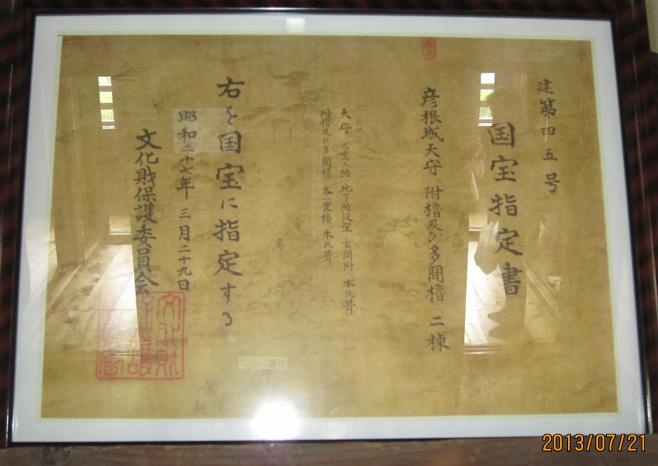 建第四五号
国宝指定書
彦根城天守 附櫓及び多聞櫓 二棟
天守 三重三階 地下階段室 玄関附 本瓦葺
附櫓及び多聞櫓 各一重櫓 本瓦葺
右を国宝に指定する
昭和二十七年三月二十九日
文化財保護委員会
2013/07/21